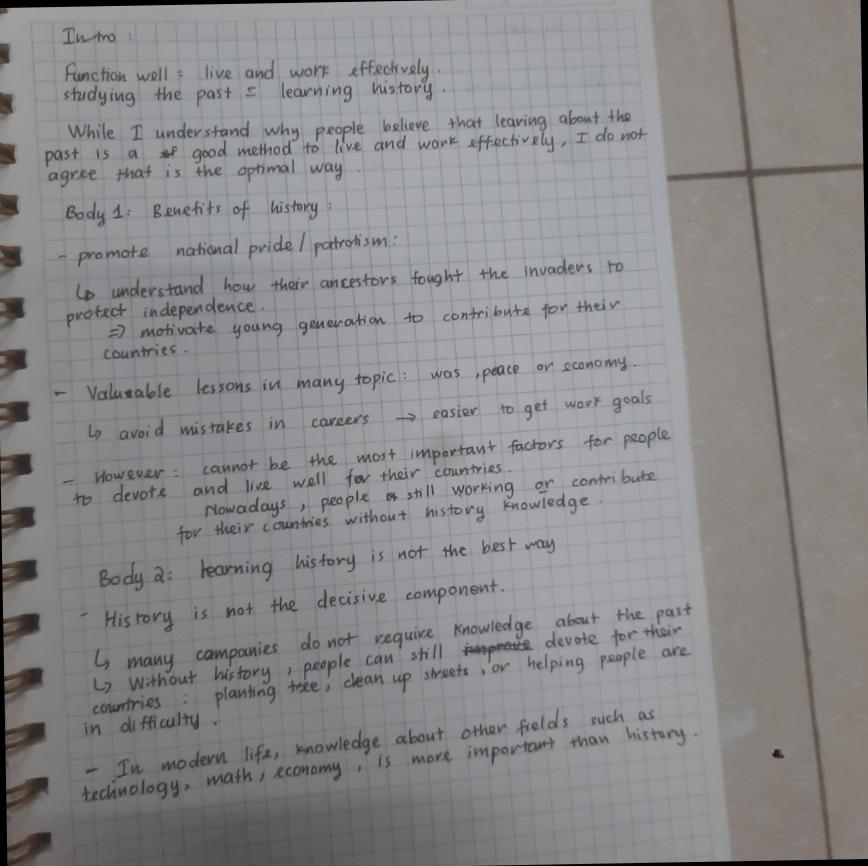 Intro :
Function well = live and work effectively.
studying the past = learning history.
While I understand why people believe that learing about the
past is a of good method to live and work effectively, I do not
agree that is the optimal way.
Body 1: Benefits of history :
- promote national pride / patrotism :
↳ understand how their ancestors fought the invaders to
protect independence.
=> motivate young generation to contribute for their
countries.
- Valueable lessons in many topic : was , peace or economy.
↳ avoid mistakes in careers → easier to get work goals
- However : cannot be the most important factors for people
to devote and live well for their countries.
Nowadays , people still working or contribute
for their countries without history knowledge.
Body 2: learning history is not the best way
- History is not the decisive component.
↳ many companies do not require knowledge about the past
↳ Without history , people can still improve devote for their
countries : planting tree, clean up streets , or helping people are
in difficulty .
- In modern life, knowledge about other fields such as
technology, math, economy , is more important than history.